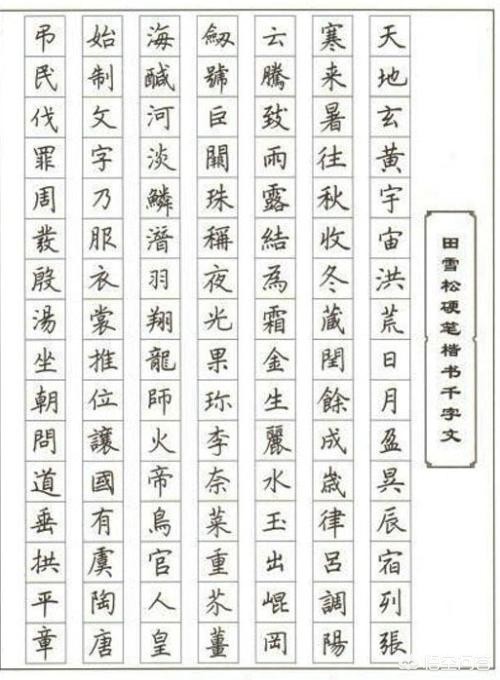 田雪松硬笔楷书千字文
天地玄黄宇宙洪荒日月盈昃辰宿列張
寒来暑往秋收冬蔵閏餘成歲律呂調陽
云騰致雨露結為霜金生麗水玉出崐岡
劔號巨闕珠稱夜光果珎李奈菜重芥薑
海醎河淡鱗潛羽翔龍師火帝鳥官人皇
始制文字乃服衣裳推位讓國有虞陶唐
弔民伐罪周發殷湯坐朝問道垂拱平章